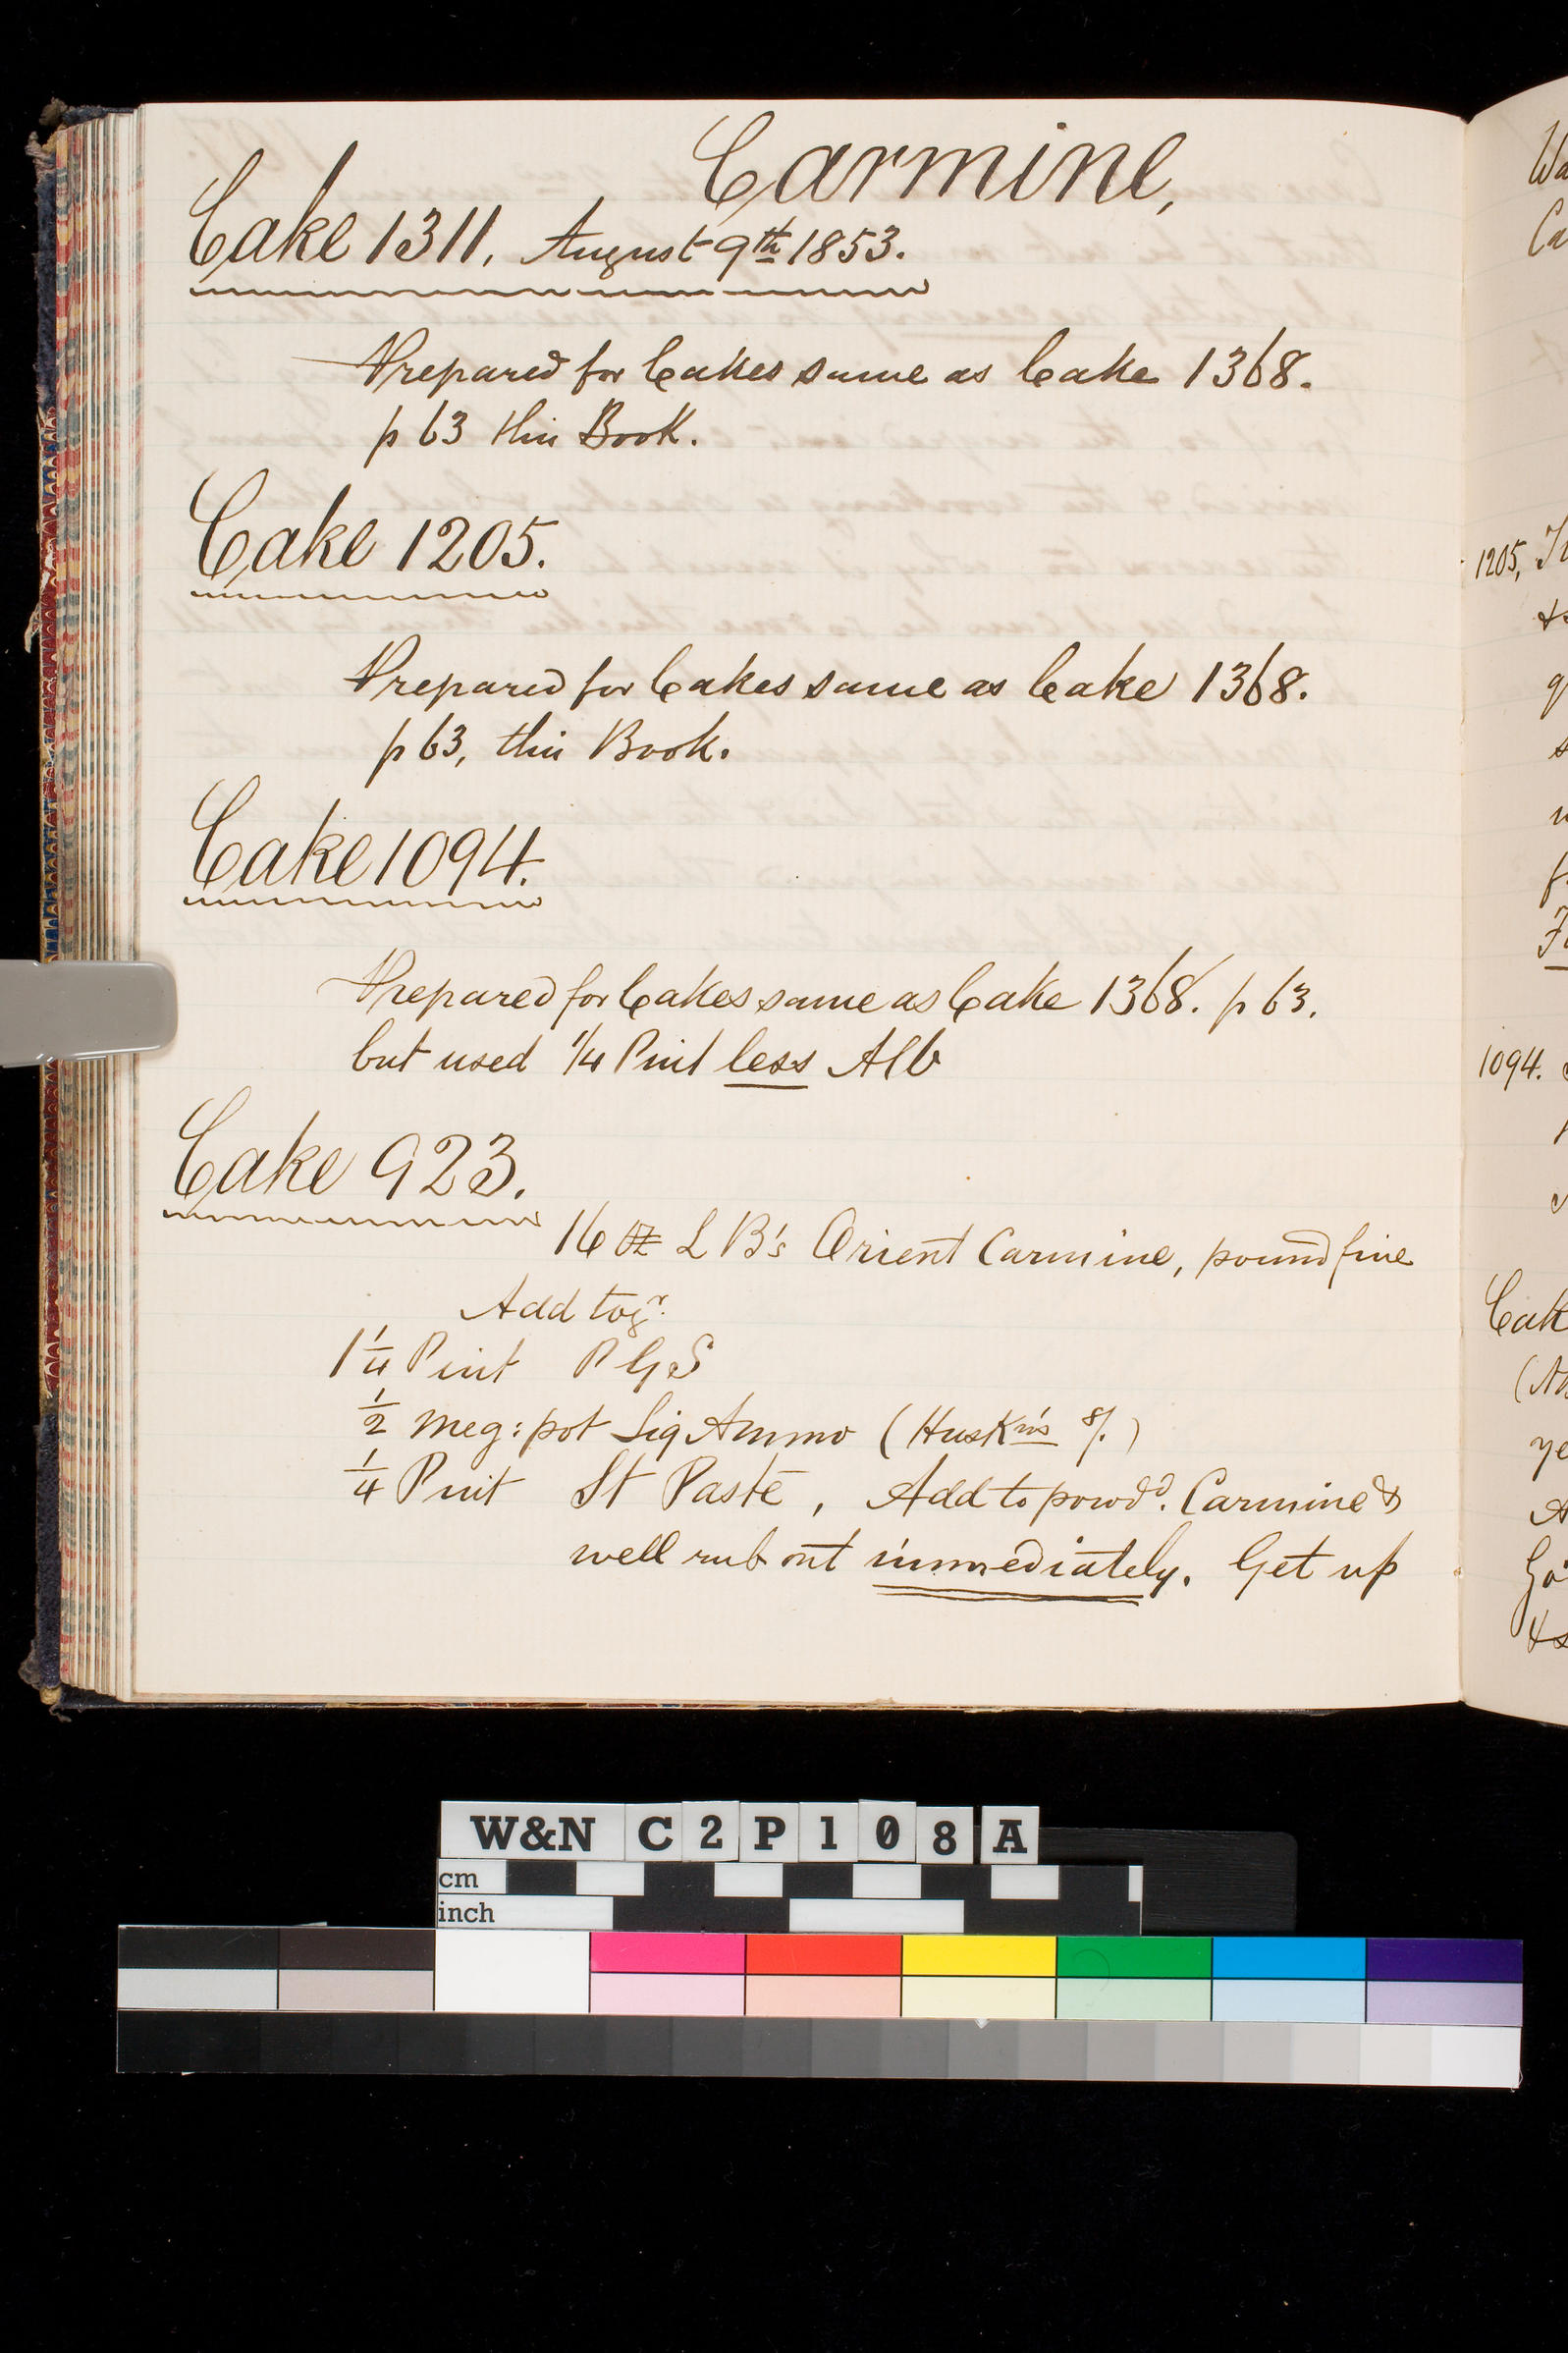 Carmine,
Cake 1311, August 9th 1853.
Prepared for Cakes same as Cake 1368.
p 63 this Book.
Cake 1205.
Prepared for Cakes same as Cake 1368.
p 63, this Book.
Cake 1094.
Prepared for Cakes same as Cake 1368. p 63.
but used 1/4 Pint less Alb
Cake 923.
16 oz L B's Orient Carmine, pound fine
Add togr.
1 1/4 Pint P G S
1/2 meg: pot Liq Ammo (Huskn's 8/.)
1/4 Pint St Paste, Add to powdd. Carmine &
well rub out immediately. Get up
Ca
1205,
1094.
Cak
ye
W&N C2P108A
cm
inch